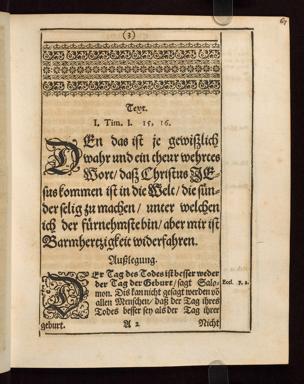 (3)
67
Text.
I. Tim. I. 15, 16.
DEn das ist je gewißlich
wahr und ein theur wehrtes
Wort/ daß Christus JE-
sus kommen ist in die Welt/ die sün-
der selig zu machen/ unter welchen
ich der fürnehmste bin/ aber mir ist
Barmhertzigkeit widerfahren.
Außlegung.
DEr Tag des Todes ist besser weder
der Tag der Geburt/ sagt Salo-
Eccl. 7. 2.
mon. Dis kan nicht gesagt werden võ
allen Menschen/ daß der Tag ihres
Todes besser sey als der Tag ihrer
geburt.
A 2
Nicht